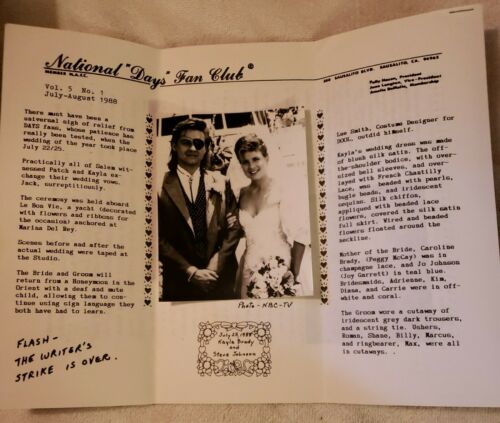 National "Days" Fan Club©
MEMBER N.A.F.C.
SAUSALITO BLVD. SAUSALITO, CA. 94965
President
June Langton, Vice-President
Membership
Vol. 5 No. 1
July-August 1988
There must have been a
universal sigh of relief from
DAYS fans, whose patience has
really been tested, when the
wedding of the year took place
July 22/25.
Practically all of Salem wit-
nessed Patch and Kayla ex-
change their wedding vows,
Jack, surreptitiously.
The ceremony was held aboard
Le Bon Vie, a yacht (decorated
with flowers and ribbons for
the occasion) anchored at
Marina Del Rey.
Scenes before and after the
actual wedding were taped at
the Studio.
The Bride and Groom will
return from a Honeymoon in the
Orient with a deaf and mute
child, allowing them to con-
tinue using sign language they
both have to learn.
FLASH -
THE WRITER'S
STRIKE IS OVER.
Photo - NBC-TV
July 25, 1988
Kayla Brady
and
Steve Johnson
Lee Smith, Costume Designer for
DOOL, outdid himself.
Kayla's wedding dress was made
of blush silk satin. The off-
the-shoulder bodice, with over-
sized bell sleeves, and over-
layed with French Chantilly
Lace, was beaded with pearls,
bugle beads, and iridescent
sequins. Silk chiffon,
appliqued with beaded lace
flowers, covered the silk satin
full skirt. Wired and beaded
flowers floated around the
neckline.
Mother of the Bride, Caroline
Brady, (Peggy McCay) was in
champagne lace, and Jo Johnson
(Joy Garrett) in teal blue.
Bridesmaids, Adrienne, Kim,
Diana, and Carrie were in off-
white and coral.
The Groom wore a cutaway of
iridescent grey dark trousers,
and a string tie. Ushers,
Roman, Shane, Billy, Marcus,
and ringbearer, Max, were all
in cutaways. .